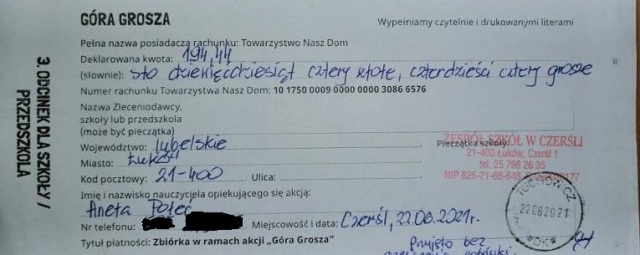 GÓRA GROSZA
Wypełniamy czytelnie i drukowanymi literami
Pełna nazwa posiadacza rachunku: Towarzystwo Nasz Dom
Deklarowana kwota: 194,44
(słownie): sto dziewięćdziesiąt cztery złote, czterdzieści cztery grosze
Numer rachunku Towarzystwa Nasz Dom: 10 1750 0009 0000 0000 3086 6576
Nazwa Zleceniodawcy,
szkoły lub przedszkola
(może być pieczątka)
Województwo: lubelskie
Pieczątka szkoły:
ZESPÓŁ SZKÓŁ W CZERŚLI
21-400 Łuków, Czerśl 1
tel. 25 798 26 35
NIP 825-21-66-648
Miasto: Łuków
Kod pocztowy: 21-400 Ulica:
Imię i nazwisko nauczyciela opiekującego się akcją:
Aneta
Nr telefonu:
Miejscowość i data: Czerśl, 22.06.2021r.
Tytuł płatności: Zbiórka w ramach akcji „Góra Grosza"
Przyjęto bez
TUCHOWICZ
22062021
3. ODCINEK DLA SZKOŁY /
PRZEDSZKOLA